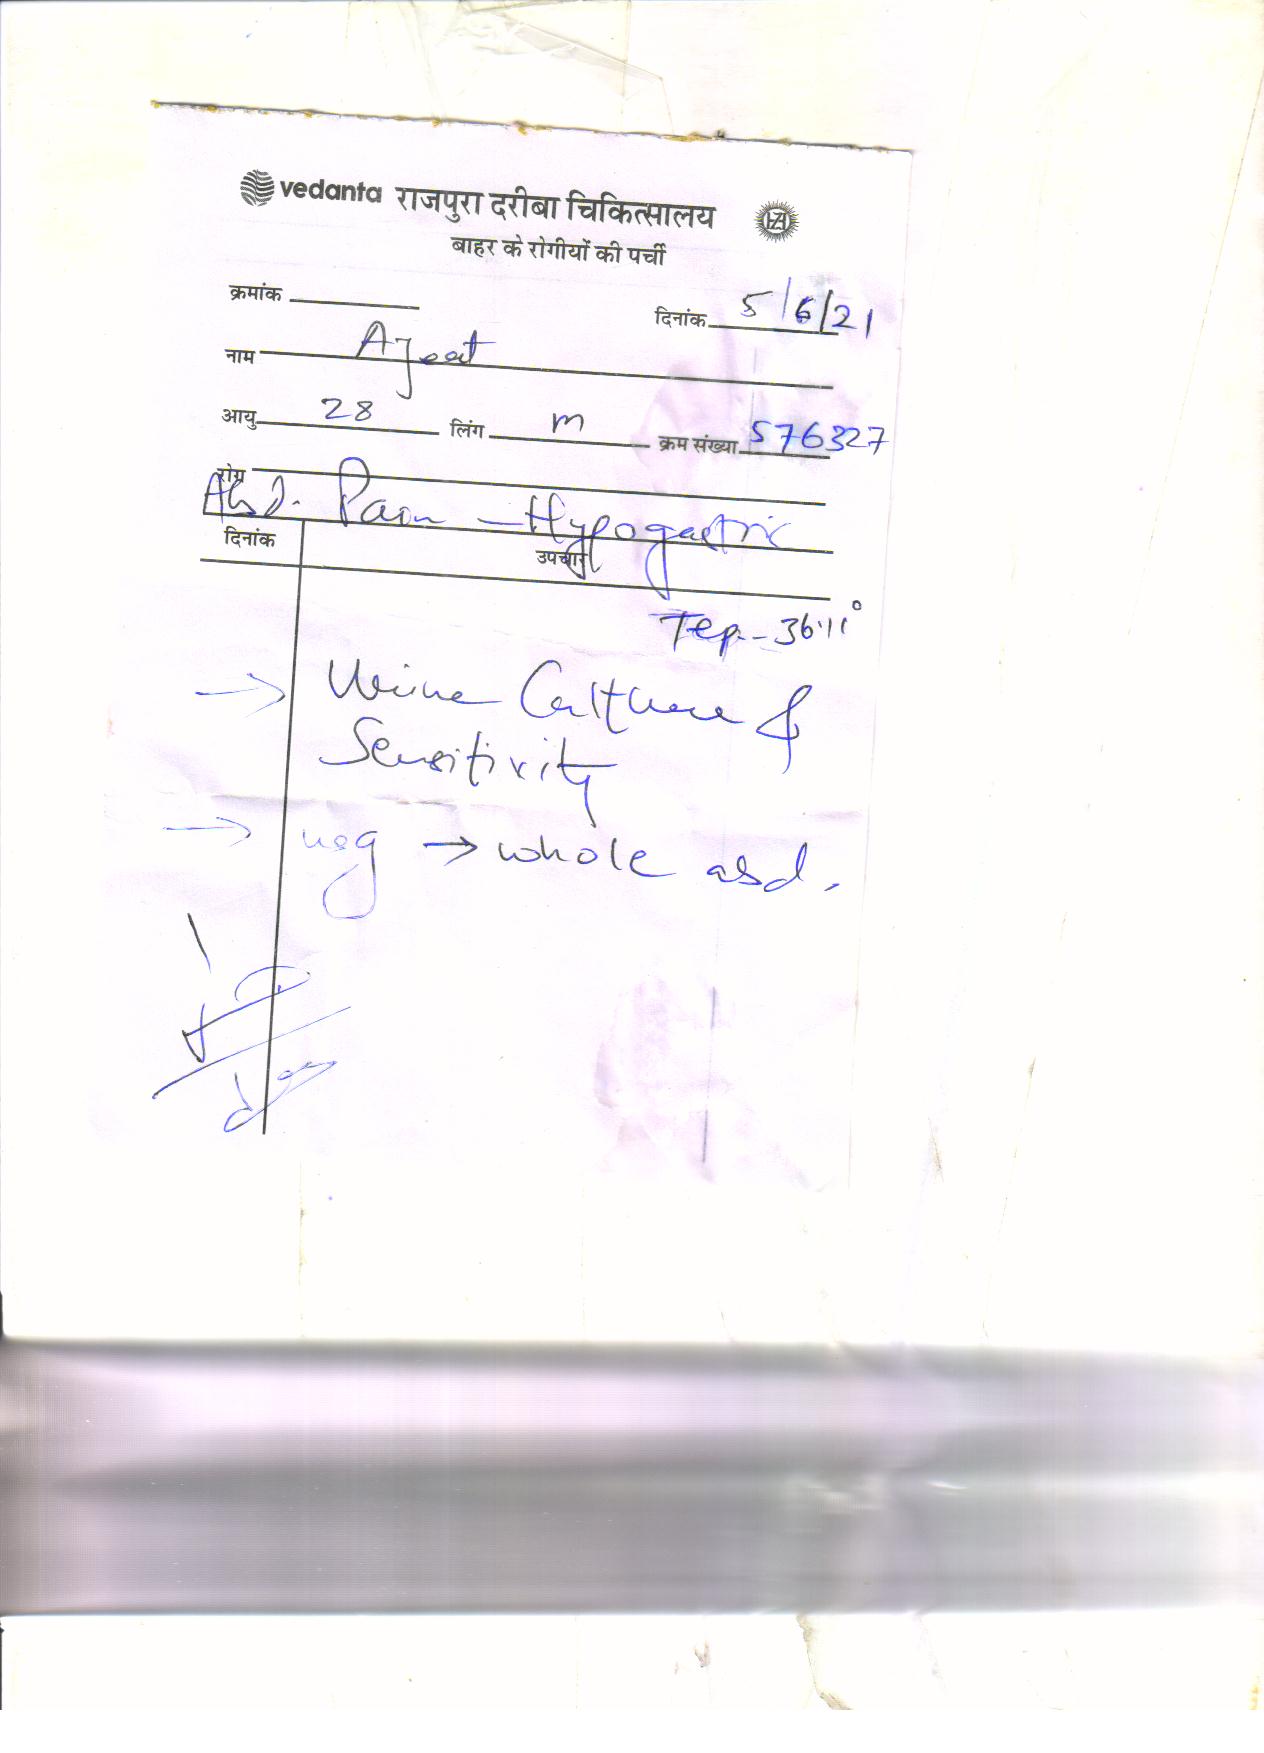 vedanta राजपुरा दरीबा चिकित्सालय HZL
बाहर के रोगीयों की पर्ची
क्रमांक
दिनांक 5/6/21
नाम Ajeet
आयु 28 लिंग m क्रम संख्या 576327
रोग
Abd. Pain - Hypogastric
दिनांक उपचार
Tep - 36.11°
→ Urine Culture &
Sensitivity
→ usg → whole abd.